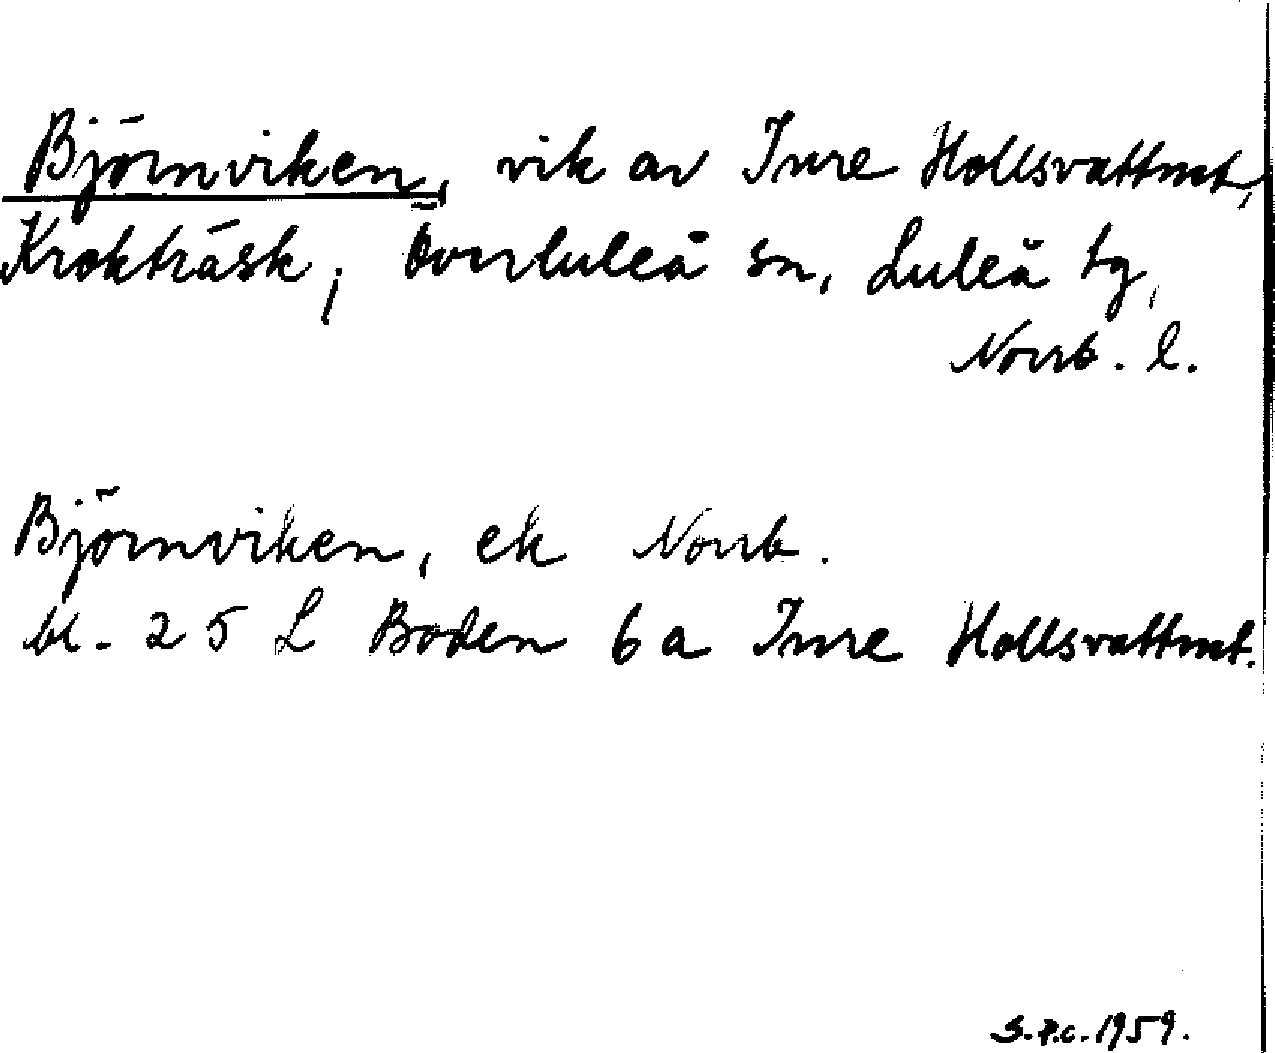 Björnviken, vik av Inre Hollsvattnet,
Krokträsk, Överluleå sn, Luleå tg,
Norrb. l.
Björnviken, ek Norrb.
bl. 25 L Boden 6 a Inre Hollsvattnet.
S.P.C. 1959.